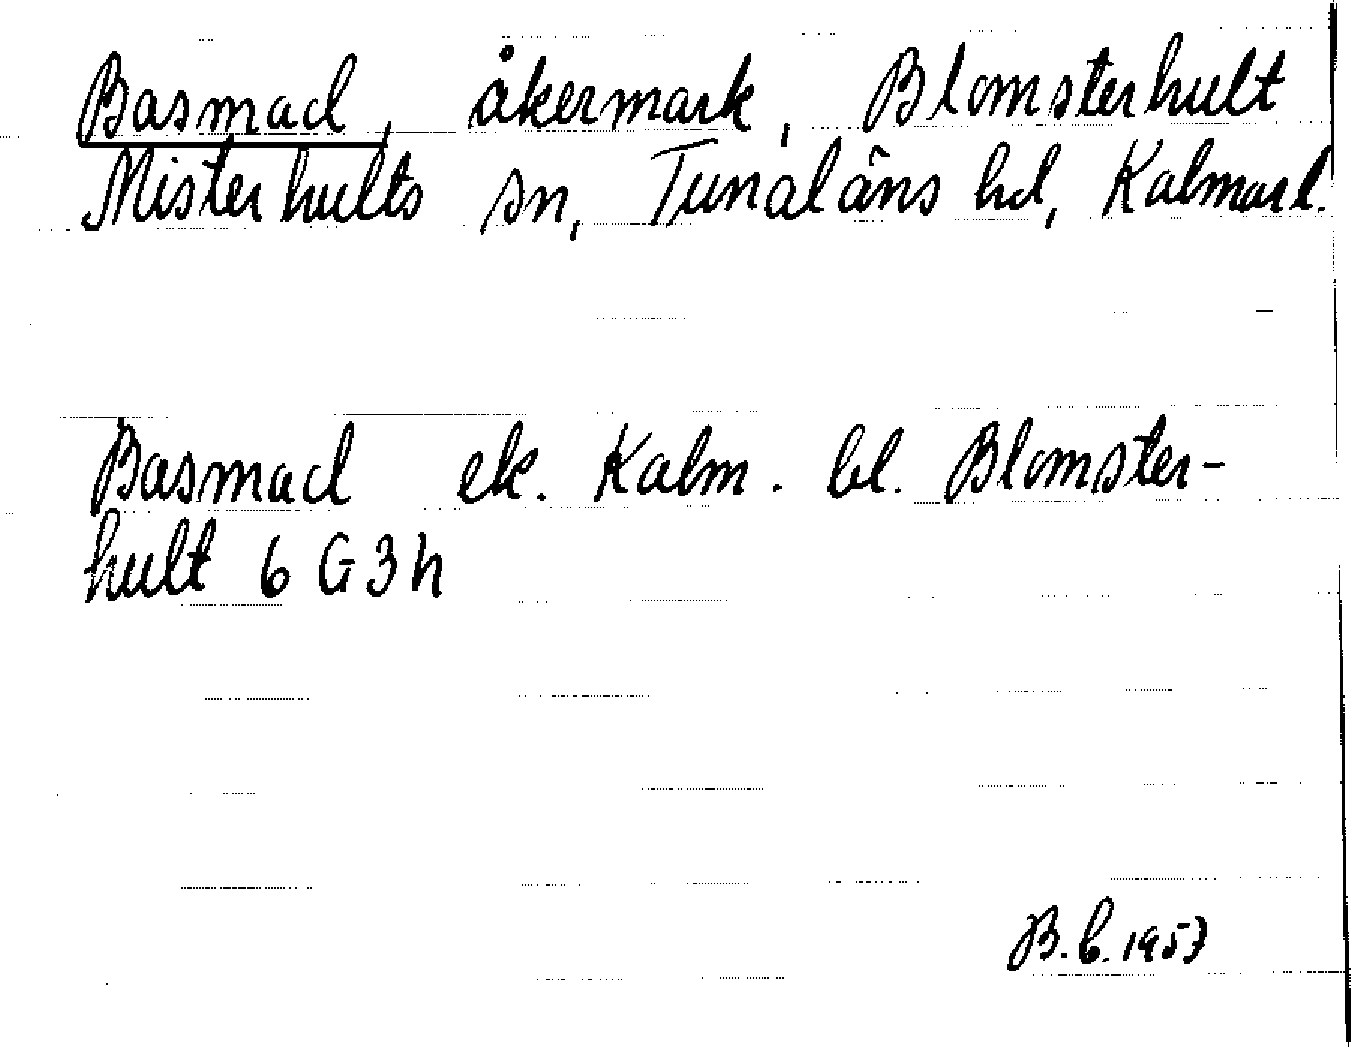 Basmad, åkermark, Blomsterhult
Misterhults sn, Tunaläns hd, Kalmarl.
Basmad ek. Kalm. bl. Blomster-
hult 6 G 3 h
B.b. 1957